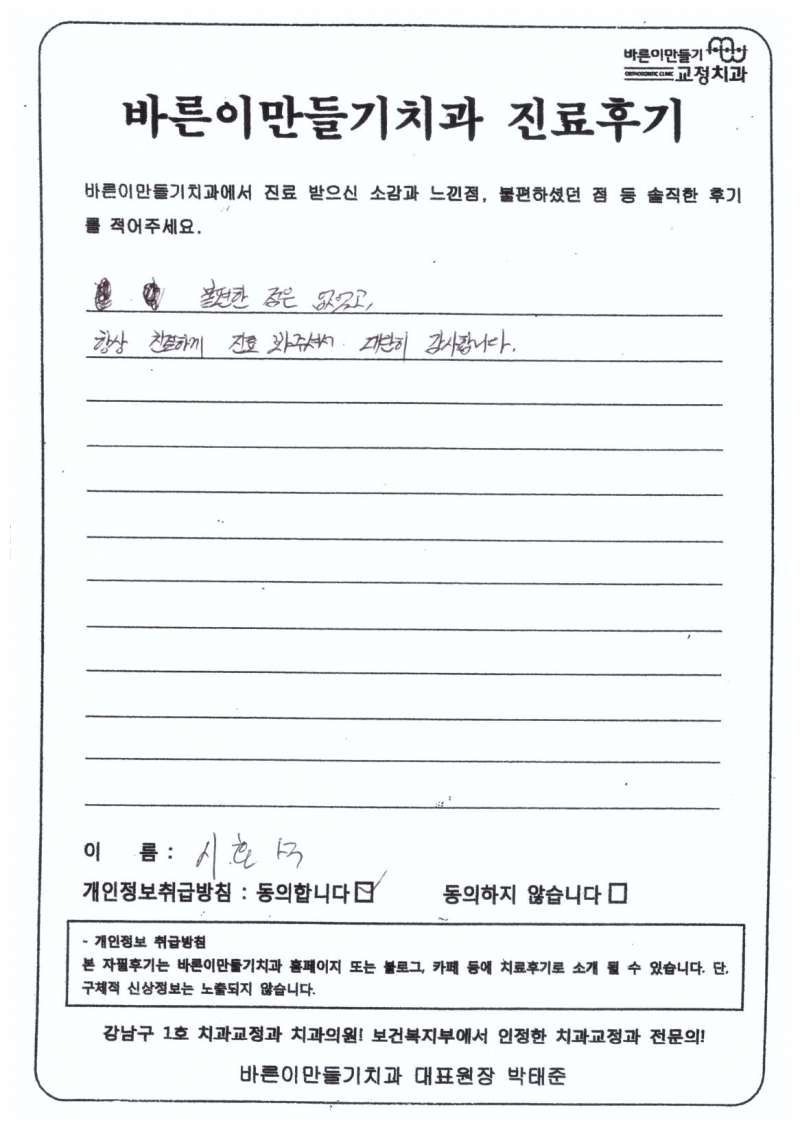 바른이만들기
ORTHODONTIC CLINIC 교정치과
바른이만들기치과 진료후기
바른이만들기치과에서 진료 받으신 소감과 느낀점, 불편하셨던 점 등 솔직한 후기
를 적어주세요.
불편한 점은 없었고,
항상 친절하게 진료 봐주셔서 대단히 감사합니다.
이 름 :
개인정보취급방침 : 동의합니다 동의하지 않습니다
- 개인정보 취급방침
본 자필후기는 바른이만들기치과 홈페이지 또는 블로그, 카페 등에 치료후기로 소개 될 수 있습니다. 단,
구체적 신상정보는 노출되지 않습니다.
강남구 1호 치과교정과 치과의원! 보건복지부에서 인정한 치과교정과 전문의!
바른이만들기치과 대표원장 박태준